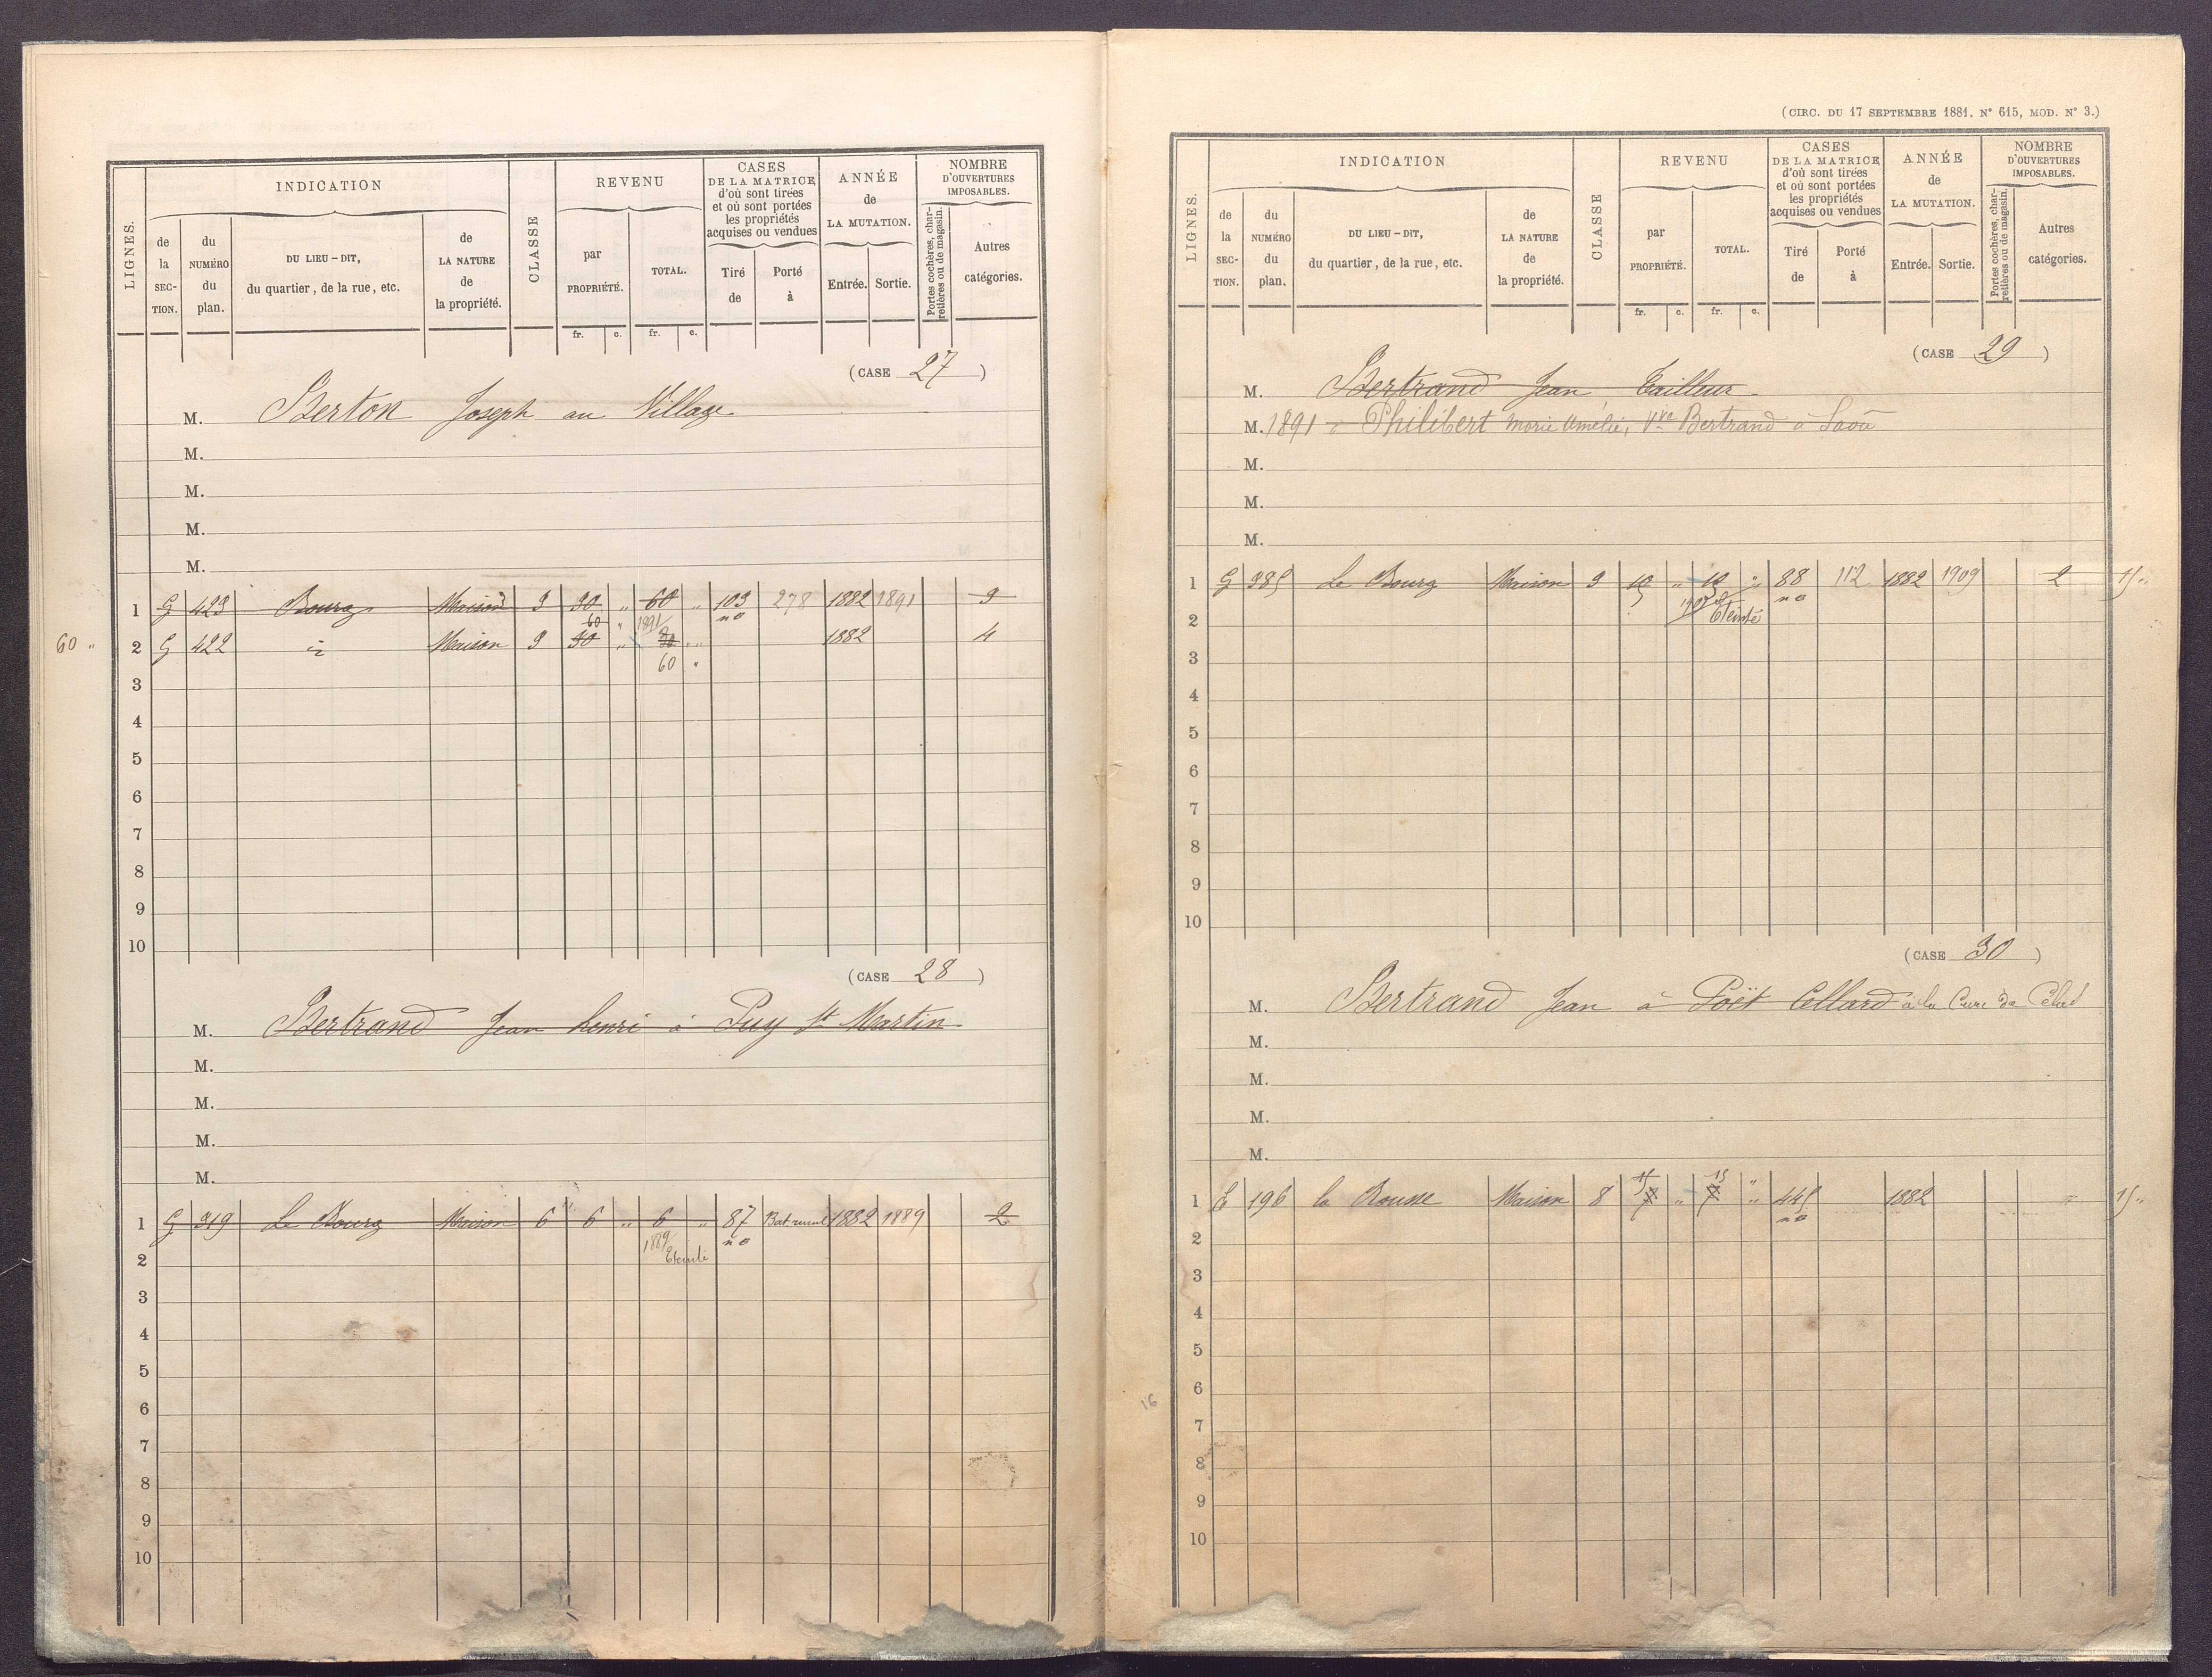 LIGNES.
INDICATION
de la SEC-TION.
du NUMÉRO du plan.
DU LIEU-DIT, du quartier, de la rue, etc.
de LA NATURE de la propriété.
CLASSE
REVENU
par PROPRIÉTÉ.
TOTAL.
fr. c. fr. c.
CASES DE LA MATRICE d'où sont tirées et où sont portées les propriétés acquises ou vendues
Tiré de
Porté à
ANNÉE de LA MUTATION.
Entrée. Sortie.
NOMBRE D'OUVERTURES IMPOSABLES.
Portes cochères, charretières ou de magasin.
Autres catégories.
(CASE 27)
M. Berton Joseph au Village
M.
M.
M.
M.
1 G 423 Bourg Maison 3 30 " 60 " 103 278 1882 1891 3
60 " 1891 no
60 " 2 G 422 id Maison 3 30 " 30 " 1882 4
60 "
3
4
5
6
7
8
9
10
(CASE 28)
M. Bertrand Jean henri à Puy St Martin
M.
M.
M.
M.
1 G 319 Le Bourg Maison 6 6 " 6 " 87 Bat rural 1882 1889 2
1889 Eteinte no
2
3
4
5
6
7
8
9
10
(CIRC. DU 17 SEPTEMBRE 1881. N° 615, MOD. N° 3.)
LIGNES.
INDICATION
de la SEC-TION.
du NUMÉRO du plan.
DU LIEU-DIT, du quartier, de la rue, etc.
de LA NATURE de la propriété.
CLASSE
REVENU
par PROPRIÉTÉ.
TOTAL.
fr. c. fr. c.
CASES DE LA MATRICE d'où sont tirées et où sont portées les propriétés acquises ou vendues
Tiré de
Porté à
ANNÉE de LA MUTATION.
Entrée. Sortie.
NOMBRE D'OUVERTURES IMPOSABLES.
Portes cochères, charretières ou de magasin.
Autres catégories.
(CASE 29)
M. Bertrand Jean Tailleur
M. 1891 Philibert Marie Amélie, Vve Bertrand à Saou
M.
M.
M.
1 G 385 Le Bourg Maison 3 10 " 10 " 88 112 1882 1909 2 15 "
Eteinte no
2
3
4
5
6
7
8
9
10
(CASE 30)
M. Bertrand Jean à Poët Cellard à la Cure de
M.
M.
M.
M.
1 E 196 la Rousse Maison 8 15 " 15 " 445 1882 15 "
no
2
3
4
5
6
7
8
9
10
16